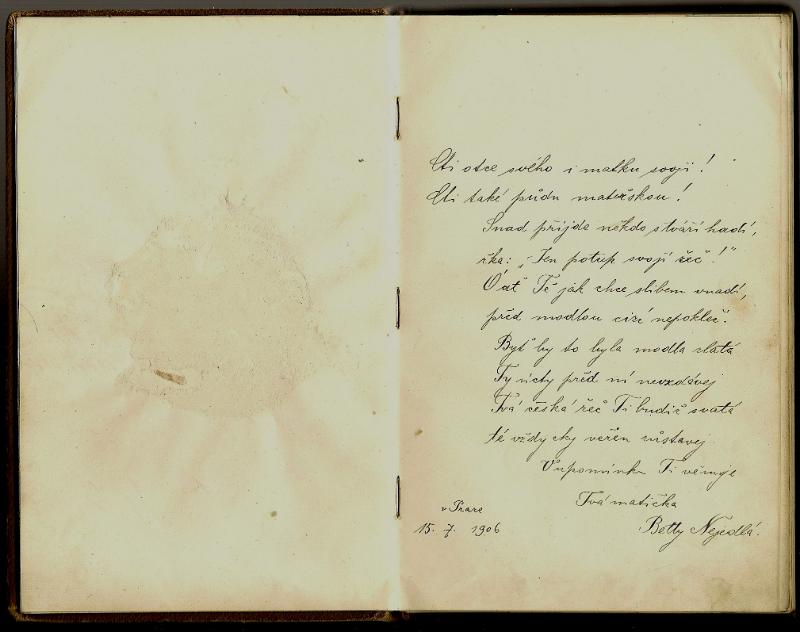 Cti otce svého i matku svoji!
Cti také půdu mateřskou!
Snad přijde někdo s tváří hadí,
řka: „Jen potup svoji řeč!"
Ó ať Tě jak chce slibem vnadí,
před modlou cizí nepokleč.
Byť by to byla modla zlatá
Ty úcty před ní nevzdávej
Tvá česká řeč Ti budiž svatá
té vždycky věren zůstavej.
Vzpomínku Ti věnuje
Tvá matička
v Praze
15. 7. 1906
Betty Nejedlá.